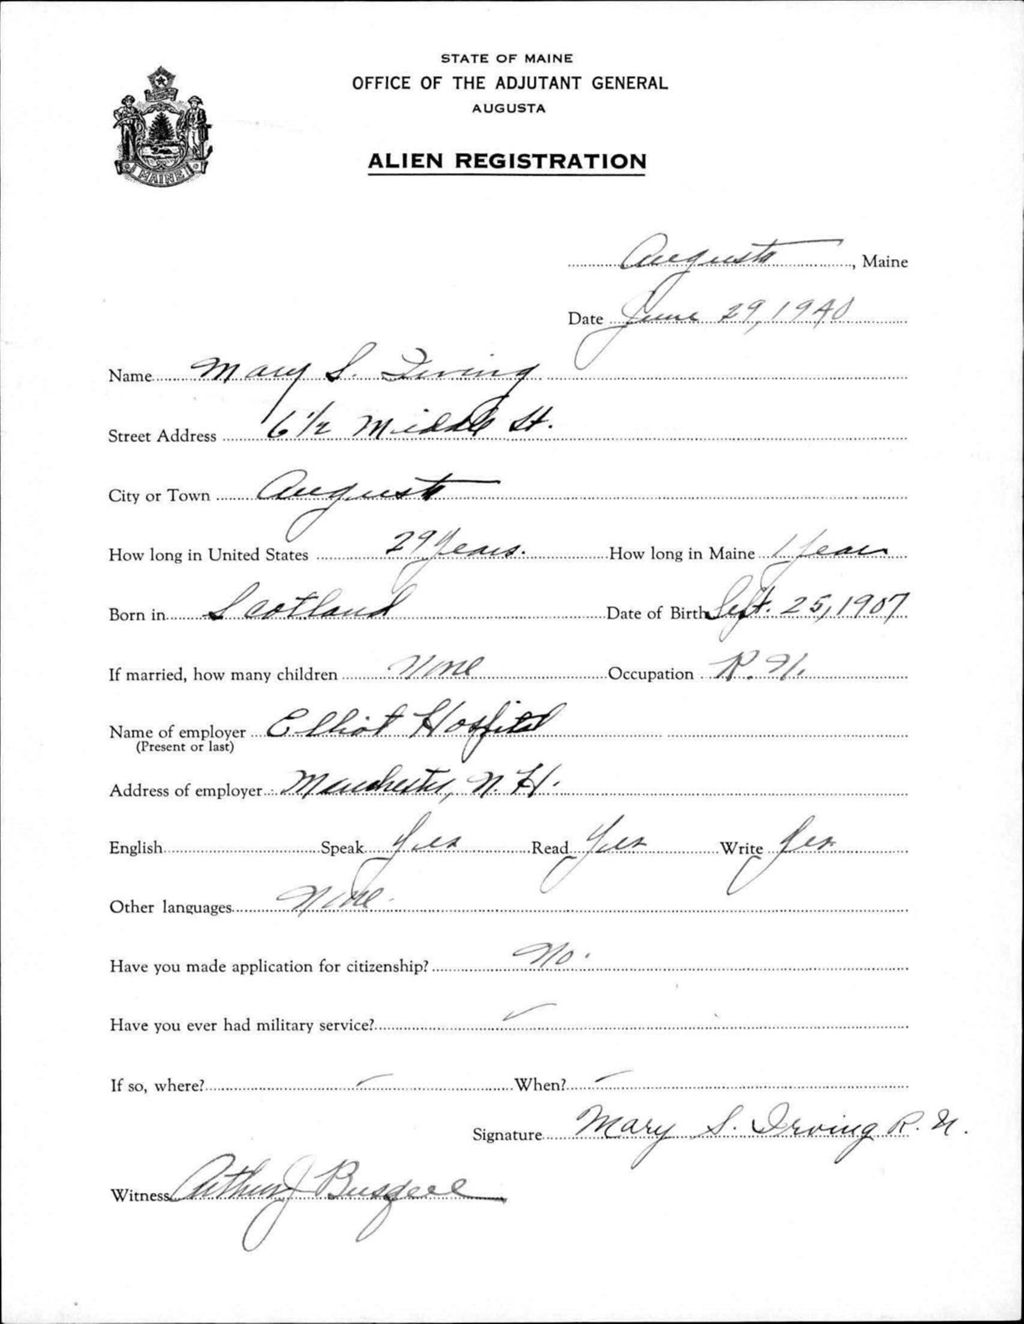 STATE OF MAINE
OFFICE OF THE ADJUTANT GENERAL
AUGUSTA
ALIEN REGISTRATION
MAINE
Augusta, Maine
Date June 29, 1940
Name Mary S. Irving
Street Address 6 1/2 Middle St.
City or Town Augusta
How long in United States 29 Years. How long in Maine 1 Year
Born in Scotland Date of Birth Sept. 25, 1907
If married, how many children None Occupation R. N.
Name of employer Elliot Hospital
(Present or last)
Address of employer Manchester, N. H.
English Speak Yes Read Yes Write Yes
Other languages None
Have you made application for citizenship? No.
Have you ever had military service? -
If so, where? - When? -
Signature Mary S. Irving R. N.
Witness Arthur J